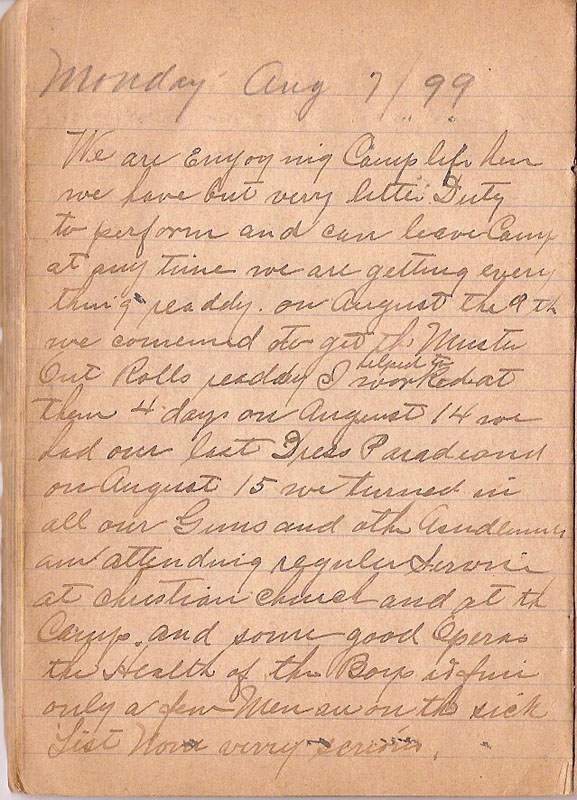 Monday Aug 7/99
We are Enjoy ing Camp life here
we have but very little Duty
to perform and can leave Camp
at any time we are getting every
thing readdy. on August the 9 th
we comenced to get the Muster
Out Rolls readdy I helped to worked at
them 4 days on August 14 we
had our last Dress Parade and
on August 15 we turned in
all our Guns and oth
am attending reguler Servise
at christian church and at th
Camp. and some good Operas
the Health of the Boys is fine
only a few Men are on the sick
List None verry serious.